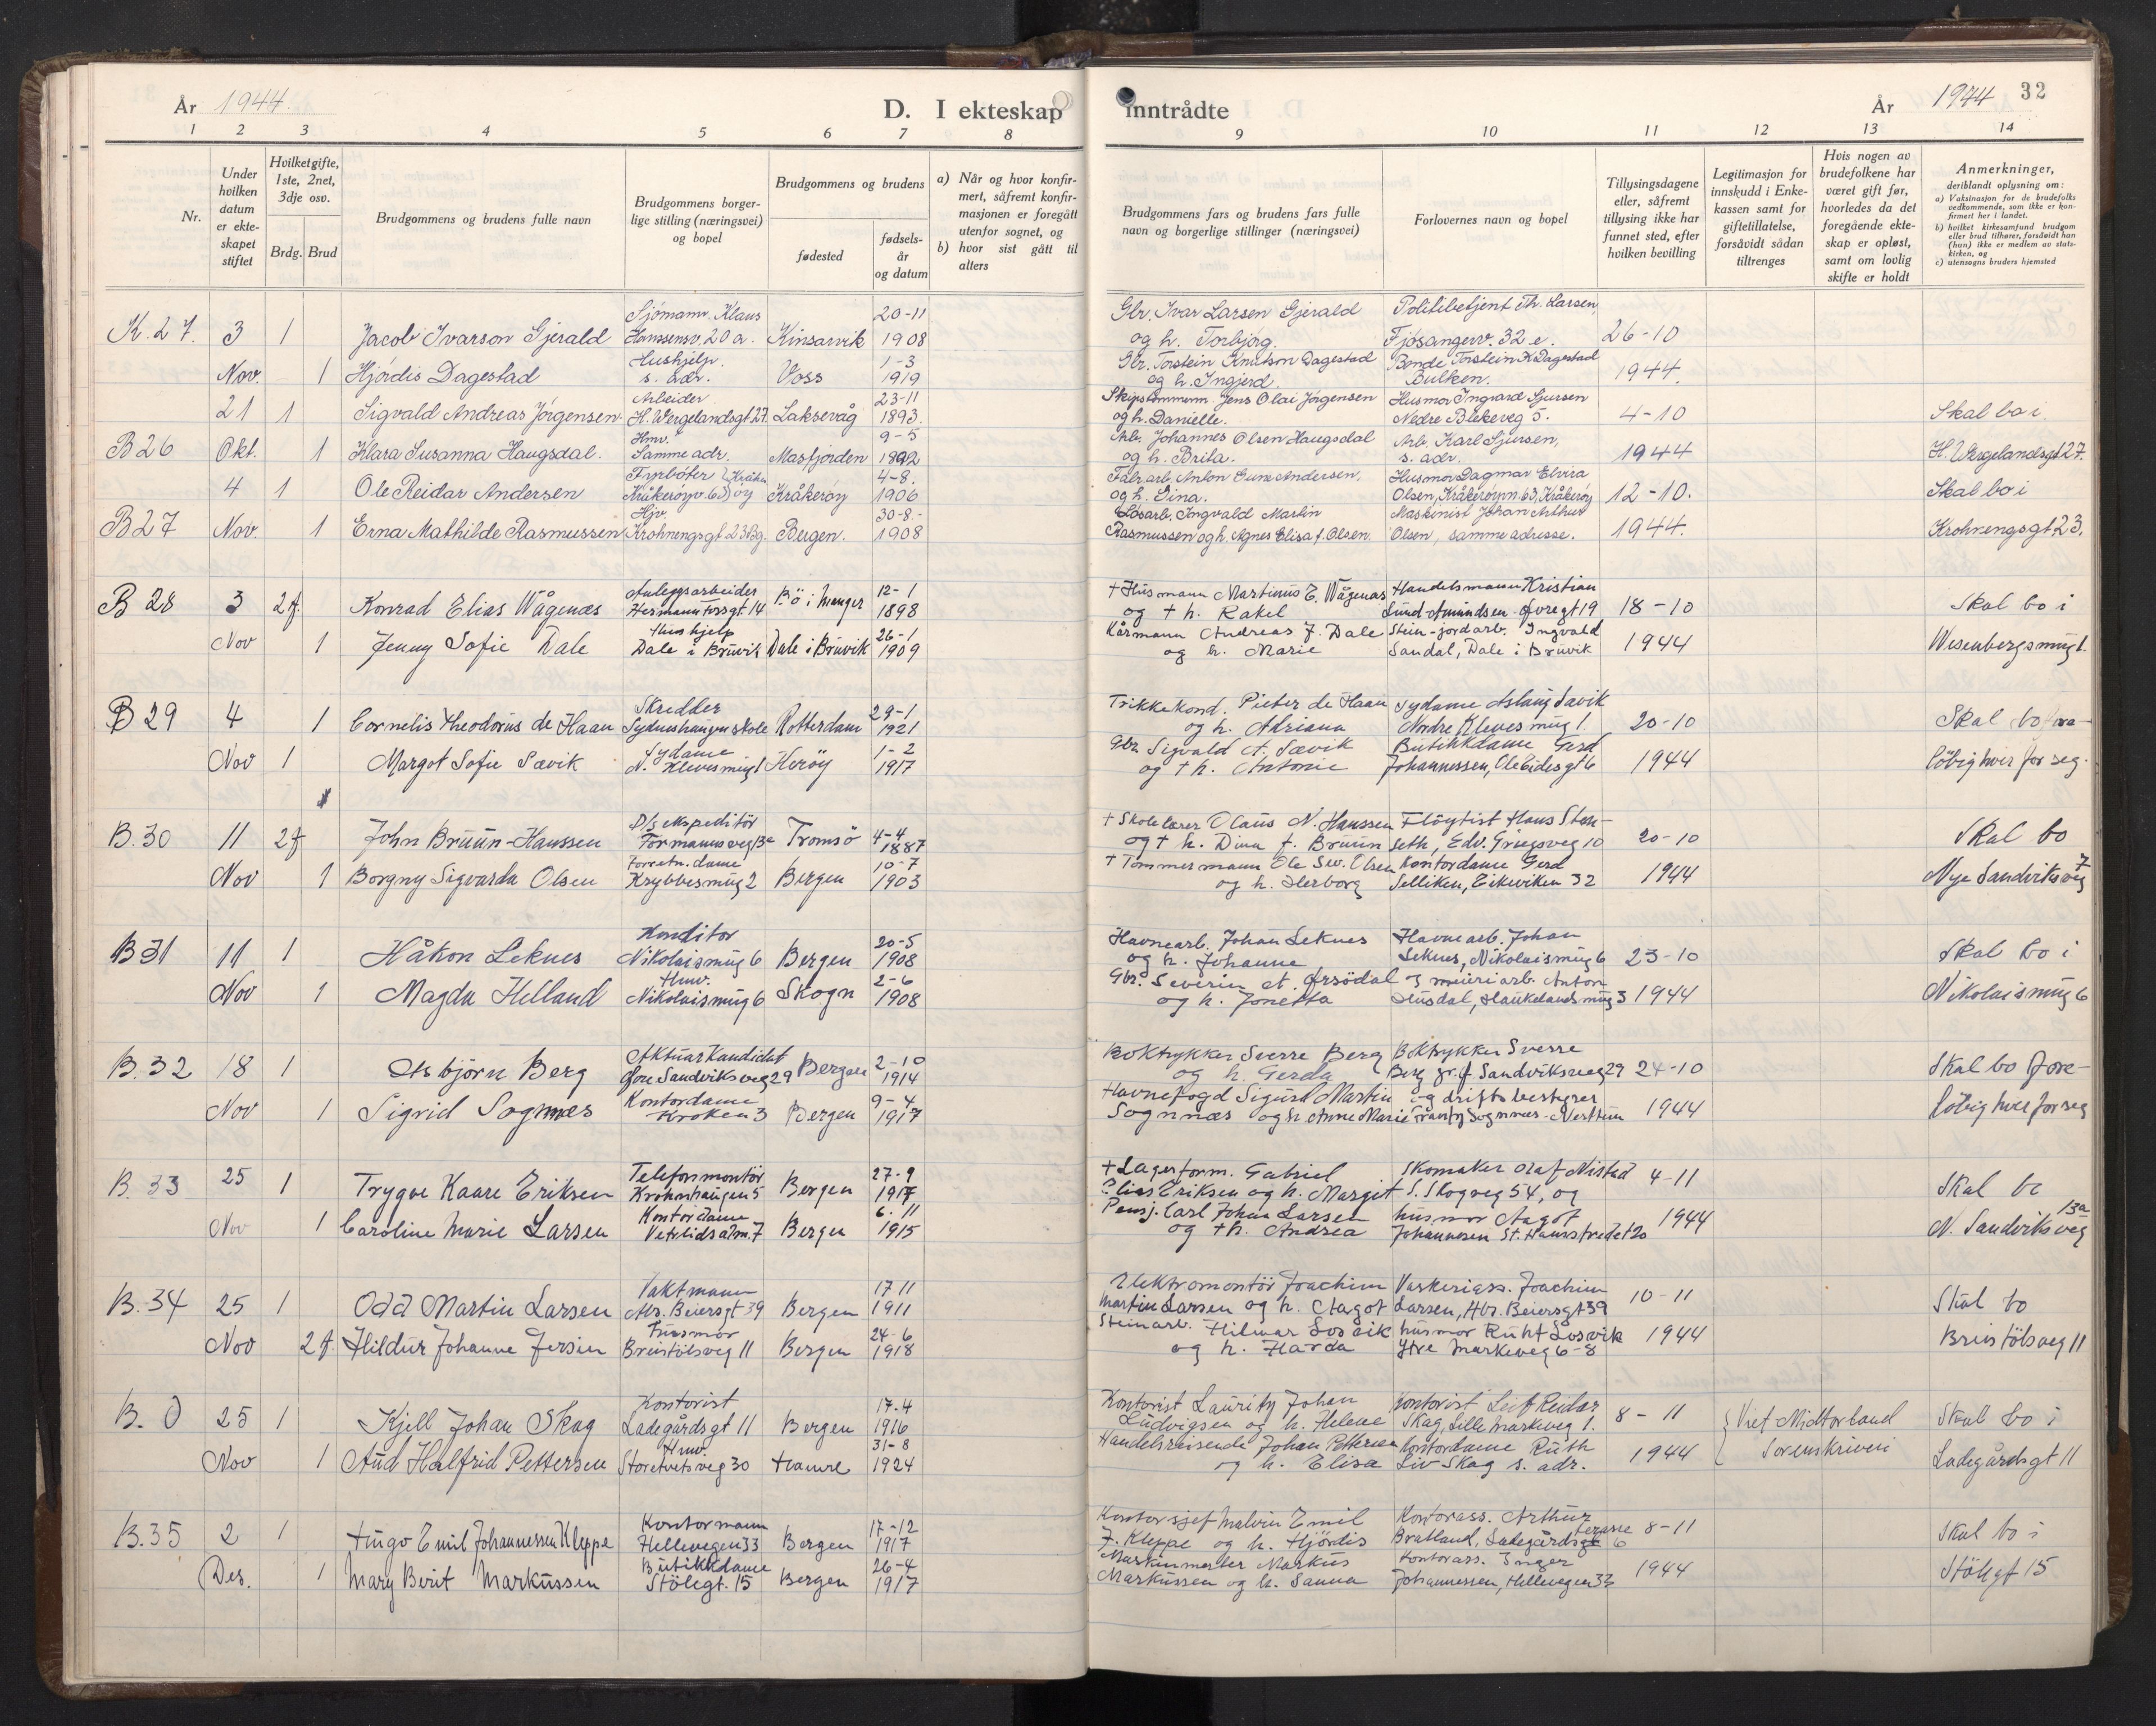 År 1944.
D. I ekteskap inntrådte
År 1944 32
1 2 3 4 5 6 7 8 9 10 11 12 13 14
Nr.
Under hvilken datum er ekteskapet stiftet
Hvilketgifte, 1ste, 2net, 3dje osv.
Brdg. Brud
Brudgommens og brudens fulle navn
Brudgommens borgerlige stilling (næringsvei) og bopel
Brudgommens og brudens
fødested
fødselsår og datum
a) Når og hvor konfirmert, såfremt konfirmasjonen er foregått utenfor sognet, og
b) hvor sist gått til alters
Brudgommens fars og brudens fars fulle navn og borgerlige stillinger (næringsvei)
Forlovernes navn og bopel
Tillysingsdagene eller, såfremt tillysing ikke har funnet sted, efter hvilken bevilling
Legitimasjon for innskudd i Enkekassen samt for giftetillatelse, forsåvidt sådan tiltrenges
Hvis nogen av brudefolkene har været gift før, hvorledes da det foregående ekteskap er opløst, samt om lovlig skifte er holdt
Anmerkninger, deriblandt oplysning om:
a) Vaksinasjon for de brudefolks vedkommende, som ikke er konfirmert her i landet.
b) hvilket kirkesamfund brudgom eller brud tilhører, forsåvidt han (hun) ikke er medlem av statskirken, og
c) utensogns bruders hjemsted
K. 27. 3 1 Jacob Ivarson Gjerald Sjömann. Klaus Hanssensv. 20 a. Kinsarvik 20-11 1908 Gbr. Ivar Larsen Gjerald og h. Torbjørg. Politibetjent Th. Larsen, Fjøsangerv. 32 e. 26-10
Nov. 1 Hjördis Dagestad Hushjelp. s. adr. Voss 1-3 1919 Gbr. Torstein Knutson Dagestad og h. Ingjerd. Bonde Torstein K Dagestad Bulken. 1944.
21 1 Sigvald Andreas Jörgensen. Arbeider H. Wergelandsgt 27. Laksevåg 23-11 1893. Jens Olai Jörgensen og h. Danielle. Husmor Ingvard Sjursen Nedre Blekeveg 5. 4-10 Skal bo i
B 26 Okt. 1 Klara Susanna Haugsdal. Hmv. Samme adr. Masfjorden 9-5 1892 Arb. Johannes Olsen Haugsdal og h. Brita. Arb. Karl Sjursen, s. adr. 1944 H. Wergelandsgt 27.
4 1 Ole Reidar Andersen Fyrböter Kråkeröyv. 63 Kråkeröy Kråkeröy 4-8. 1906 Fabr. arb. Anton Sune Andersen, og h. Lina. Husmor Dagmar Elvira Olsen, Kråkeröyvn. 63, Kråkeröy 12-10. Skal bo i
B 27 Nov. 1 Erna Mathilde Rasmussen Hjv. Krohnengsgt 23 Bg. Bergen. 30-8- 1908 Løsarb. Ingvald Martin Rasmussen og h. Agnes Elisa f. Olsen. Maskinist Johan Arthur Olsen, samme adresse. 1944. Krohnengsgt 23.
B 28 3 2 f. Konrad Elias Wågenes Anleggsarbeider Hermann Fossgt 14 Bö i Manger 12-1 1898 + Husmann Martinus E. Wågenes og + h. Rakel Handelsmann Kristian Lund-Amundsen Øvregt 19 18-10 Skal bo i
Nov 1 Jenny Sofie Dale Hushjelp Dale i Bruvik Dale i Bruvik 26-1 1909 Kårmann Andreas J. Dale og h. Marie Stein-jordarb. Ingvald Sandal, Dale i Bruvik 1944 Wesenbergsmug 1.
B 29 4 1 Cornelis Theodorus de Haan Skredder Sydneshaugen skole Rotterdam 29-1 1921 Trikkekond. Pieter de Haan og h. Adriana Sydame Aslaug Savik Nordre Klevesmug 1. 20-10 Skal bo fore-
Nov 1 Margot Sofie Sævik Sydame N. Klevesmug 1 Heröy 1-2 1917 Gbr Sigvald A. Sævik og + h. Antonie Butikkdame Gerd Johannessen, Ole Eidesgt 6 1944 löbig hver for seg.
B. 30 11 2 f John Bruun-Hanssen D/s ekspeditör Formannsveg 13e Tromsö 4-4 1887 + Skolelærer Olaus N. Hanssen og + h. Dina f. Bruun Flöytist Hans Stenseth, Edv. Griegsveg 10 20-10 Skal bo
Nov 1 Borgny Sigvarda Olsen Forretn. dame Krybbesmug 2 Bergen 10-7 1903 + Tømmermann Ole Sev. Olsen og h. Herborg Kontordame Gerd Selliken, Eikeviken 32 1944 Nye Sandviksveg 7
B 31 11 1 Håkon Leknes Konditor Nikolaismug 6 Bergen 20-5 1908 Havnearb. Johan Leknes og h. Johanne Havnearb. Johan Leknes, Nikolaismug 6 23-10 Skal bo i
Nov 1 Magda Helland Hmv. Nikolaismug 6 Skogn 2-6 1908 Gbr. Severin og h. Jonetta meieriarb. Anton Husdal, Haukelandsmug 3 1944 Nikolaismug 6
B. 32 18 1 Asbjörn Berg Aktuarkandidat Øvre Sandviksveg 29 Bergen 2-10 1914 Boktrykker Sverre Berg og h. Gerda Boktrykker Sverre Berg Sandviksveg 29 24-10 Skal bo fore-
Nov 1 Sigrid Sognnes Kontordame Kroken 3 Bergen 9-4 1917 Havnefogd Sigurd Martin Sognnæs og h. Anne Marie og driftsbestyrer Frantz Sognnes-Nesttun 1944 löbig hver for seg
B. 33 25 1 Trygve Kaare Eriksen Telefonmontör Krohnhaugen 5 Bergen 27-9 1917 + Lagerform. Gabriel Elias Eriksen og h. Margit Skomaker Olaf Nistad S. Skogveg 54, og 4-11 Skal bo
Nov 1 Caroline Marie Larsen Kontordame Vetrlidsalm. 7 Bergen 6. 11 1915 Pensj. Carl Johan Larsen og + h. Andrea husmor Aagot Johannesen St. Hansstredet 20 1944 N. Sandviksveg 13a
B. 34 25 1 Odd Martin Larsen Vaktmann Abr. Beiersgt 39 Bergen 17 11 1911 Elektromontör Joachim Martin Larsen og h. Aagot Vaskeriass. Joachim Larsen, Abr. Beiersgt 39 10-11 Skal bo
Nov 2 f. Hildur Johanne Jersin Husmor Breistölsveg 11 Bergen 24-6 1918 Steinarb. Hilmar Losvik og h. Harda husmor Ruht Losvik Ytre Markeveg 6-8 1944 Breistölsveg 11
B. 0 25 1 Kjell Johan Skag Kontorist Ladegårdsgt 11 Bergen 17.4 1916 Kontorist Lauritz Johan Ludvigsen og h. Helene Kontorist Leif Reidar Skag, Lille Markeveg 1. 8-11 Viet Midthorland Skal bo i
Nov 1 Aud Halfrid Pettersen Hmv. Storetveitsveg 30 Hamre 31-8 1924 Handelsreisende Johan Pettersen og h. Elisa Kontordame Ruth Liv Skag s. adr. 1944 Sorenskriveri Ladegårdsgt 11
B. 35 2 1 Hugo Emil Johannessen Kleppe Kontormann Hellevegen 33 Bergen 17-12 1917 Kontorsjef Malvin Emil J. Kleppe og h. Hjördis Kontorass. Arthur Bratland, Ladegårdsterasse 6 8-11 Skal bo i
Des. 1 Mary Berit Markussen Butikkdame Stölegt. 15 Bergen 26-4 1917 Maskinmester Markus Markussen og h. Sanna Kontorass. Inger Johannessen, Hellevegen 33 1944 Stölegt 15